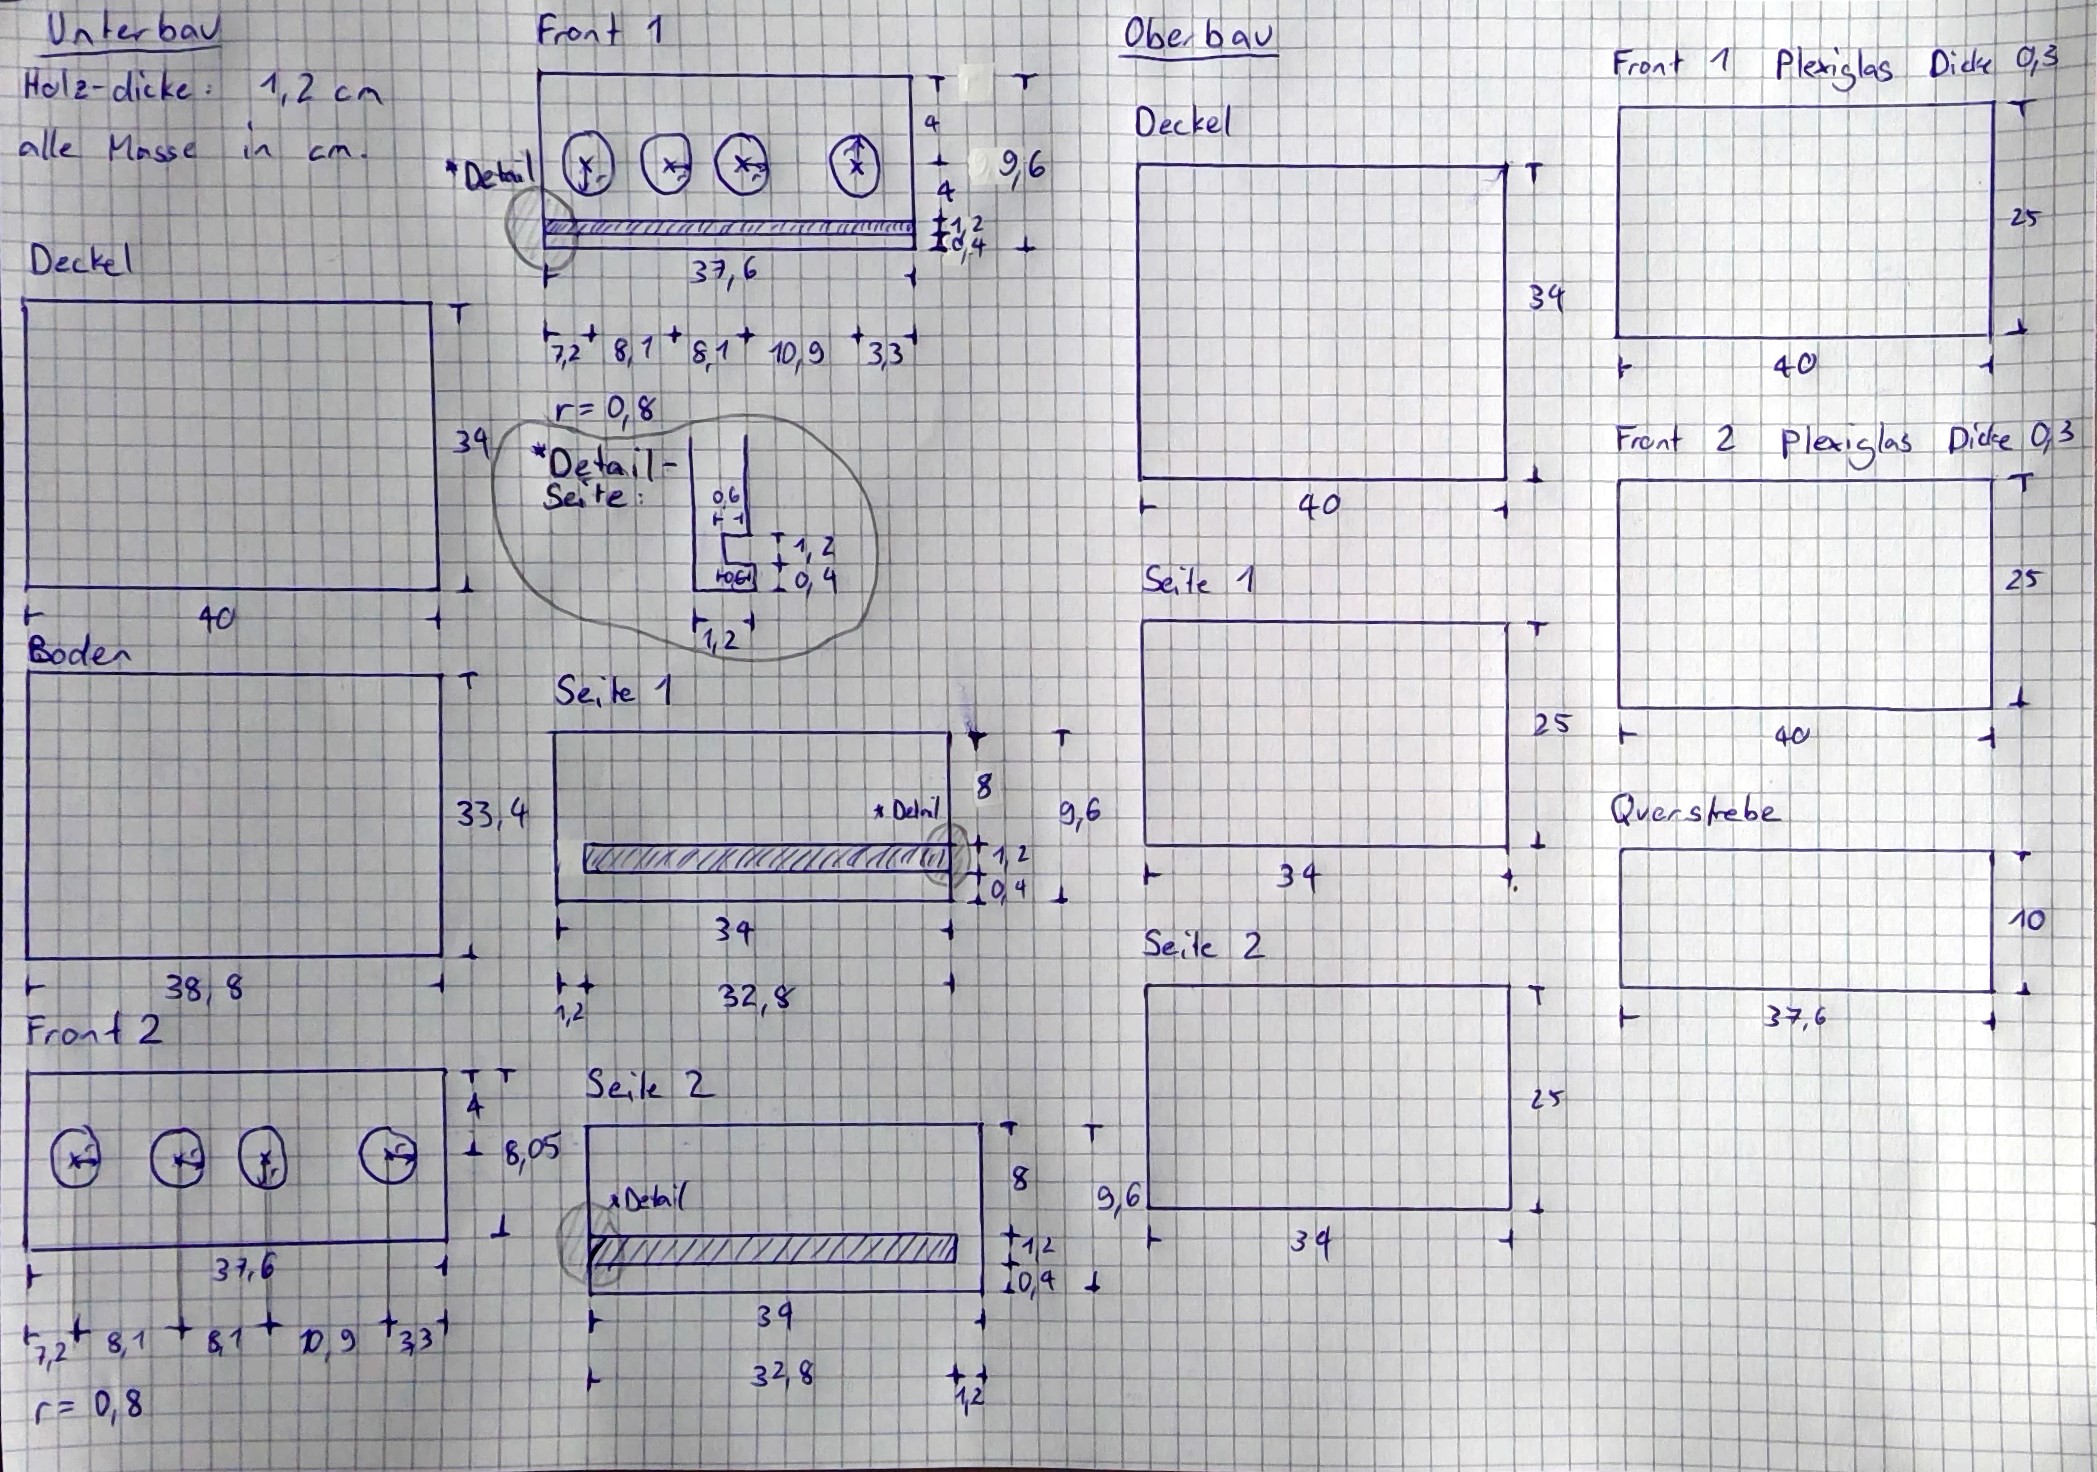 Unterbau
Holz-dicke: 1,2 cm
alle Masse in cm.
Deckel
34
40
Boden
33,4
38,8
Front 2
4
8,05
37,6
7,2 8,1 8,1 10,9 3,3
r = 0,8
Front 1
*Detail
4
4
1,2
0,4
9,6
37,6
7,2 8,1 8,1 10,9 3,3
r = 0,8
*Detail-
Seite:
0,6
1,2
0,6
0,4
1,2
Seite 1
8
*Detail
9,6
1,2
0,4
34
1,2 32,8
Seite 2
8
*Detail
9,6
1,2
0,4
34
32,8 1,2
Oberbau
Deckel
34
40
Seite 1
25
34
Seite 2
25
34
Front 1 Plexiglas Dicke 0,3
25
40
Front 2 Plexiglas Dicke 0,3
25
40
Querstrebe
10
37,6